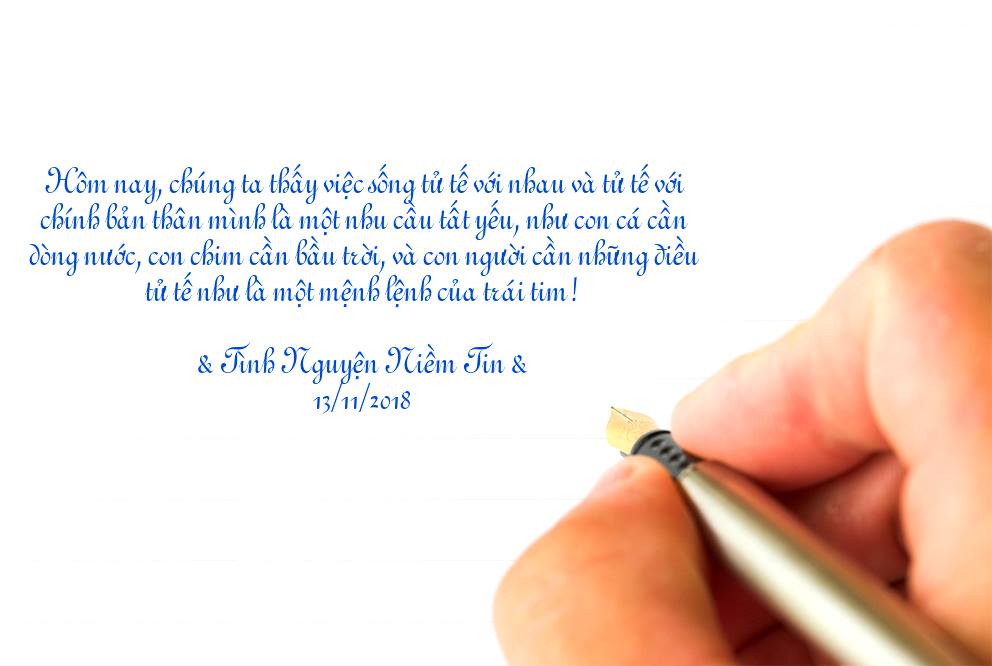 Hôm nay, chúng ta thấy việc sống tử tế với nhau và tử tế với
chính bản thân mình là một nhu cầu tất yếu, như con cá cần
dòng nước, con chim cần bầu trời, và con người cần những điều
tử tế như là một mệnh lệnh của trái tim!
& Tình Nguyện Niềm Tin &
13/11/2018